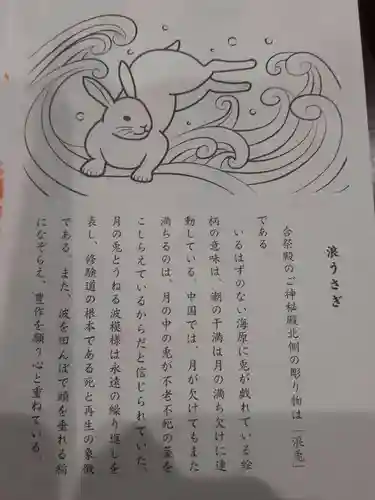 浪うさぎ
合祭殿のご神秘殿北側の彫り物は「浪兎」
である
いるはずのない海原に兎が戯れている絵
柄の意味は、潮の干満は月の満ち欠けに連
動している。中国では、月が欠けてもまた
満ちるのは、月の中の兎が不老不死の薬を
こしらえているからだと信じられていた。
月の兎とうねる波模様は永遠の繰り返しを
表し、修験道の根本である死と再生の象徴
である。また、波を田んぼで頭を垂れる稲
になぞらえ、豊作を願う心と重ねている。